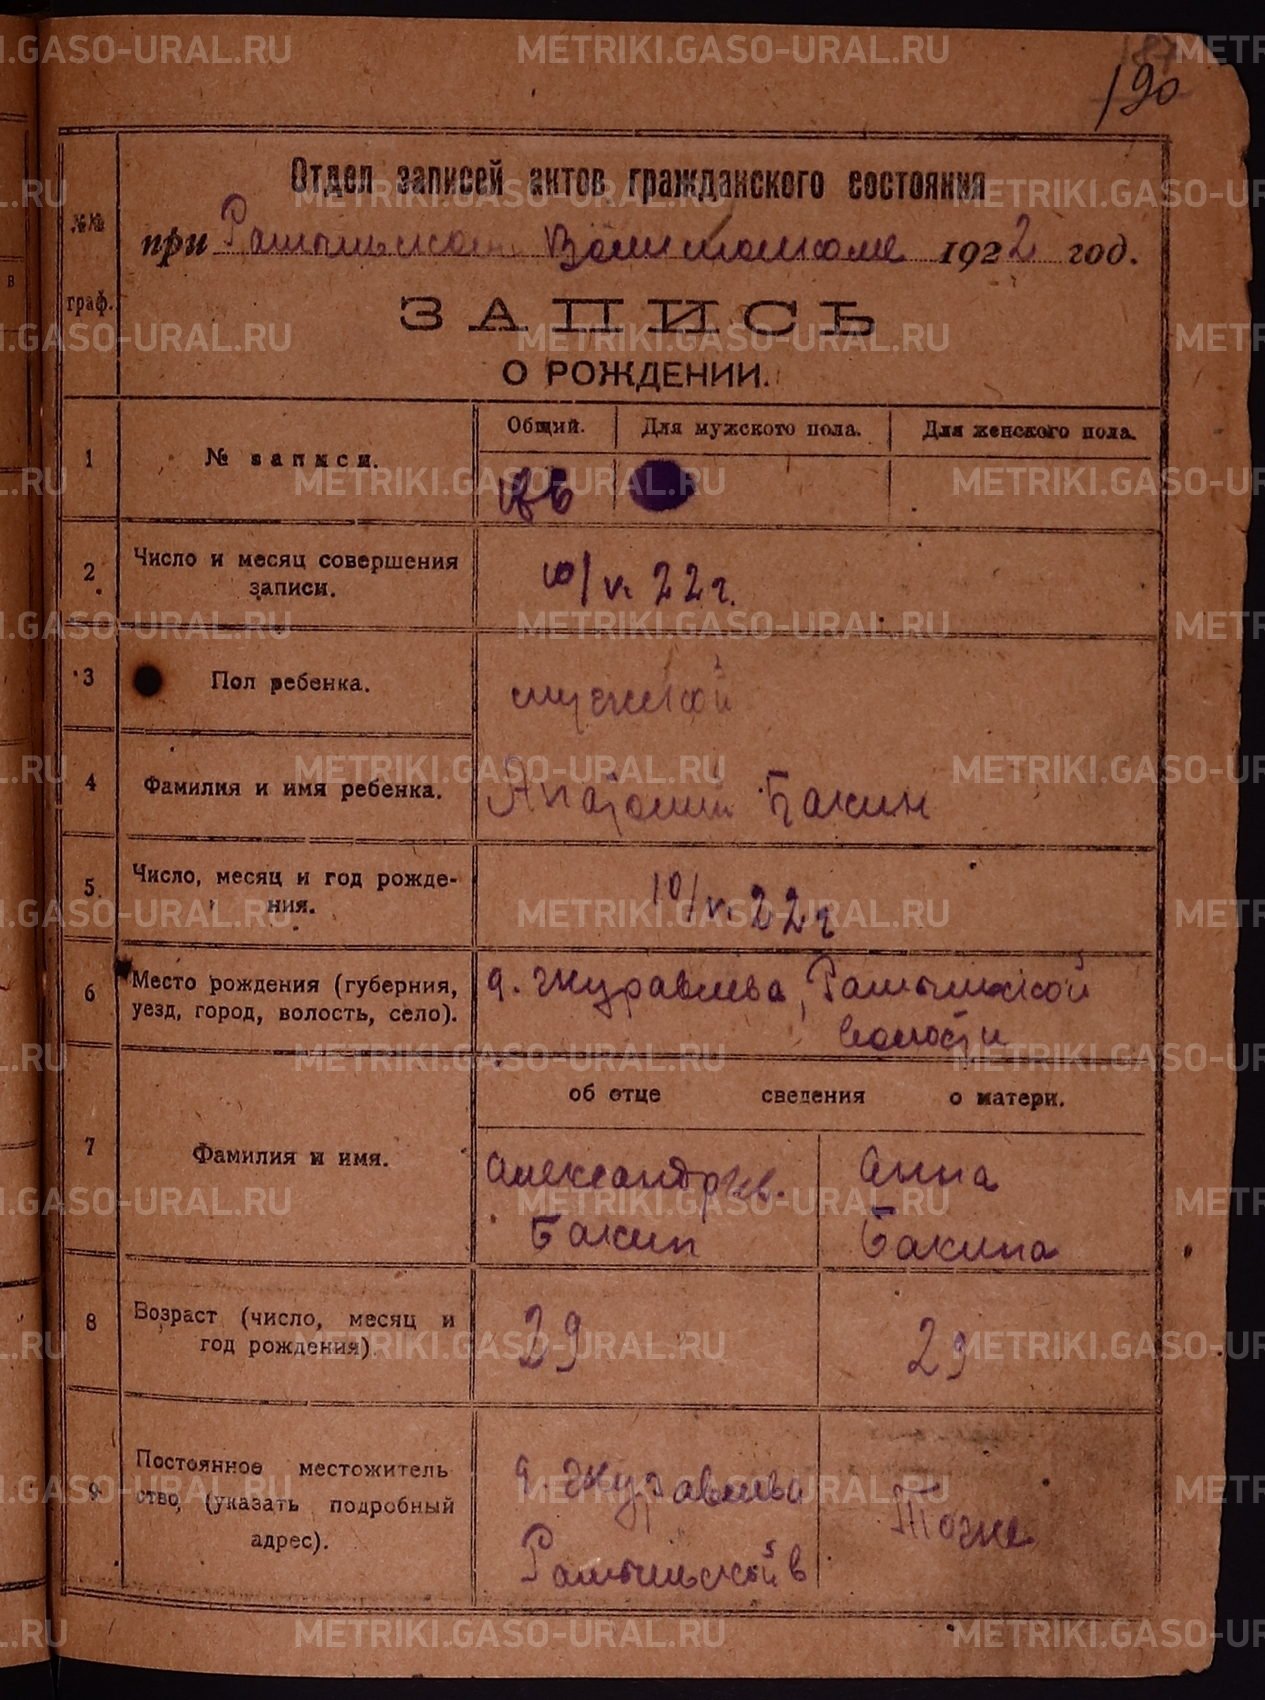 190
Отдел записей актов гражданского состояния
№№ граф.
при Волисполкоме 1922 год.
ЗАПИСЬ
О РОЖДЕНИИ.
Общий. Для мужского пола. Для женского пола.
1 № записи.
2 Число и месяц совершения
записи.
10/V. 22 г.
3 Пол ребенка.
мужской
4 Фамилия и имя ребенка.
Анатолий Бакин
5 Число, месяц и год рожде-
ния.
10/V. 22 г
6 Место рождения (губерния,
уезд, город, волость, село).
д. Журавлева,
волости
об отце сведения о матери.
7 Фамилия и имя.
Александр Анна
Бакин Бакина
8 Возраст (число, месяц и
год рождения)
29 29
9 Постоянное местожитель
ство, (указать подробный
адрес).
д. Журавлева Тоже
в
METRIKI.GASO-URAL.RU